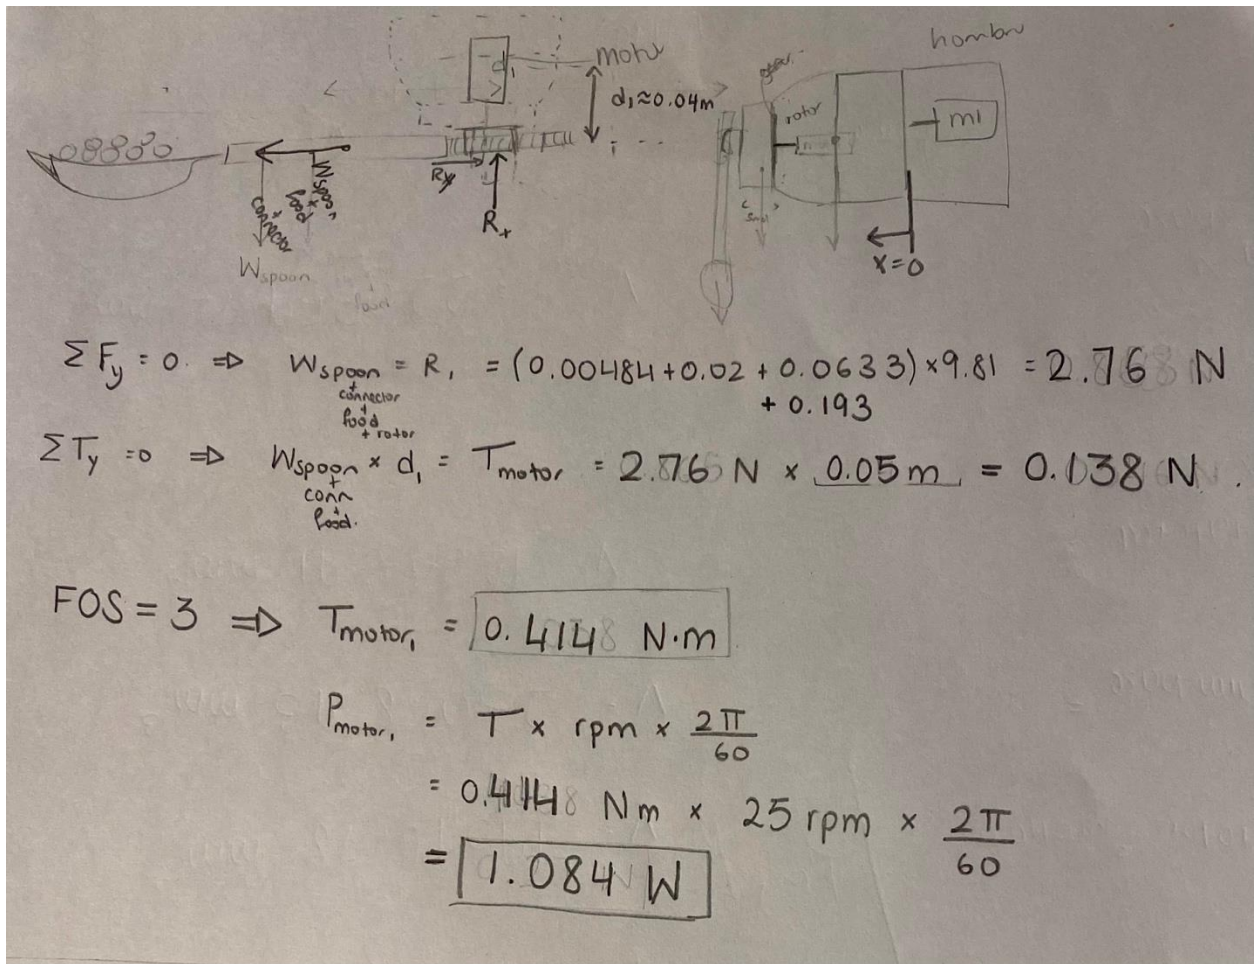 motor
d₁
d₁≈0.04m
gear
rotor
hombro
m1
Ry
Rₓ
Wspoon
+
food
+
connector
Wspoon
food
x=0
ΣFy = 0. ⇒ Wspoon + connector + food + rotor = R₁ = (0.00484+0.02+0.0633)×9.81 = 2.76 N
+ 0.193
ΣTy =0 ⇒ Wspoon + conn + food. × d₁ = Tmotor = 2.76 N × 0.05m = 0.138 N.
FOS = 3 ⇒ Tmotor₁ = 0.414 N·m
Pmotor₁ = T × rpm × 2π/60
= 0.414 Nm × 25 rpm × 2π/60
= 1.084 W